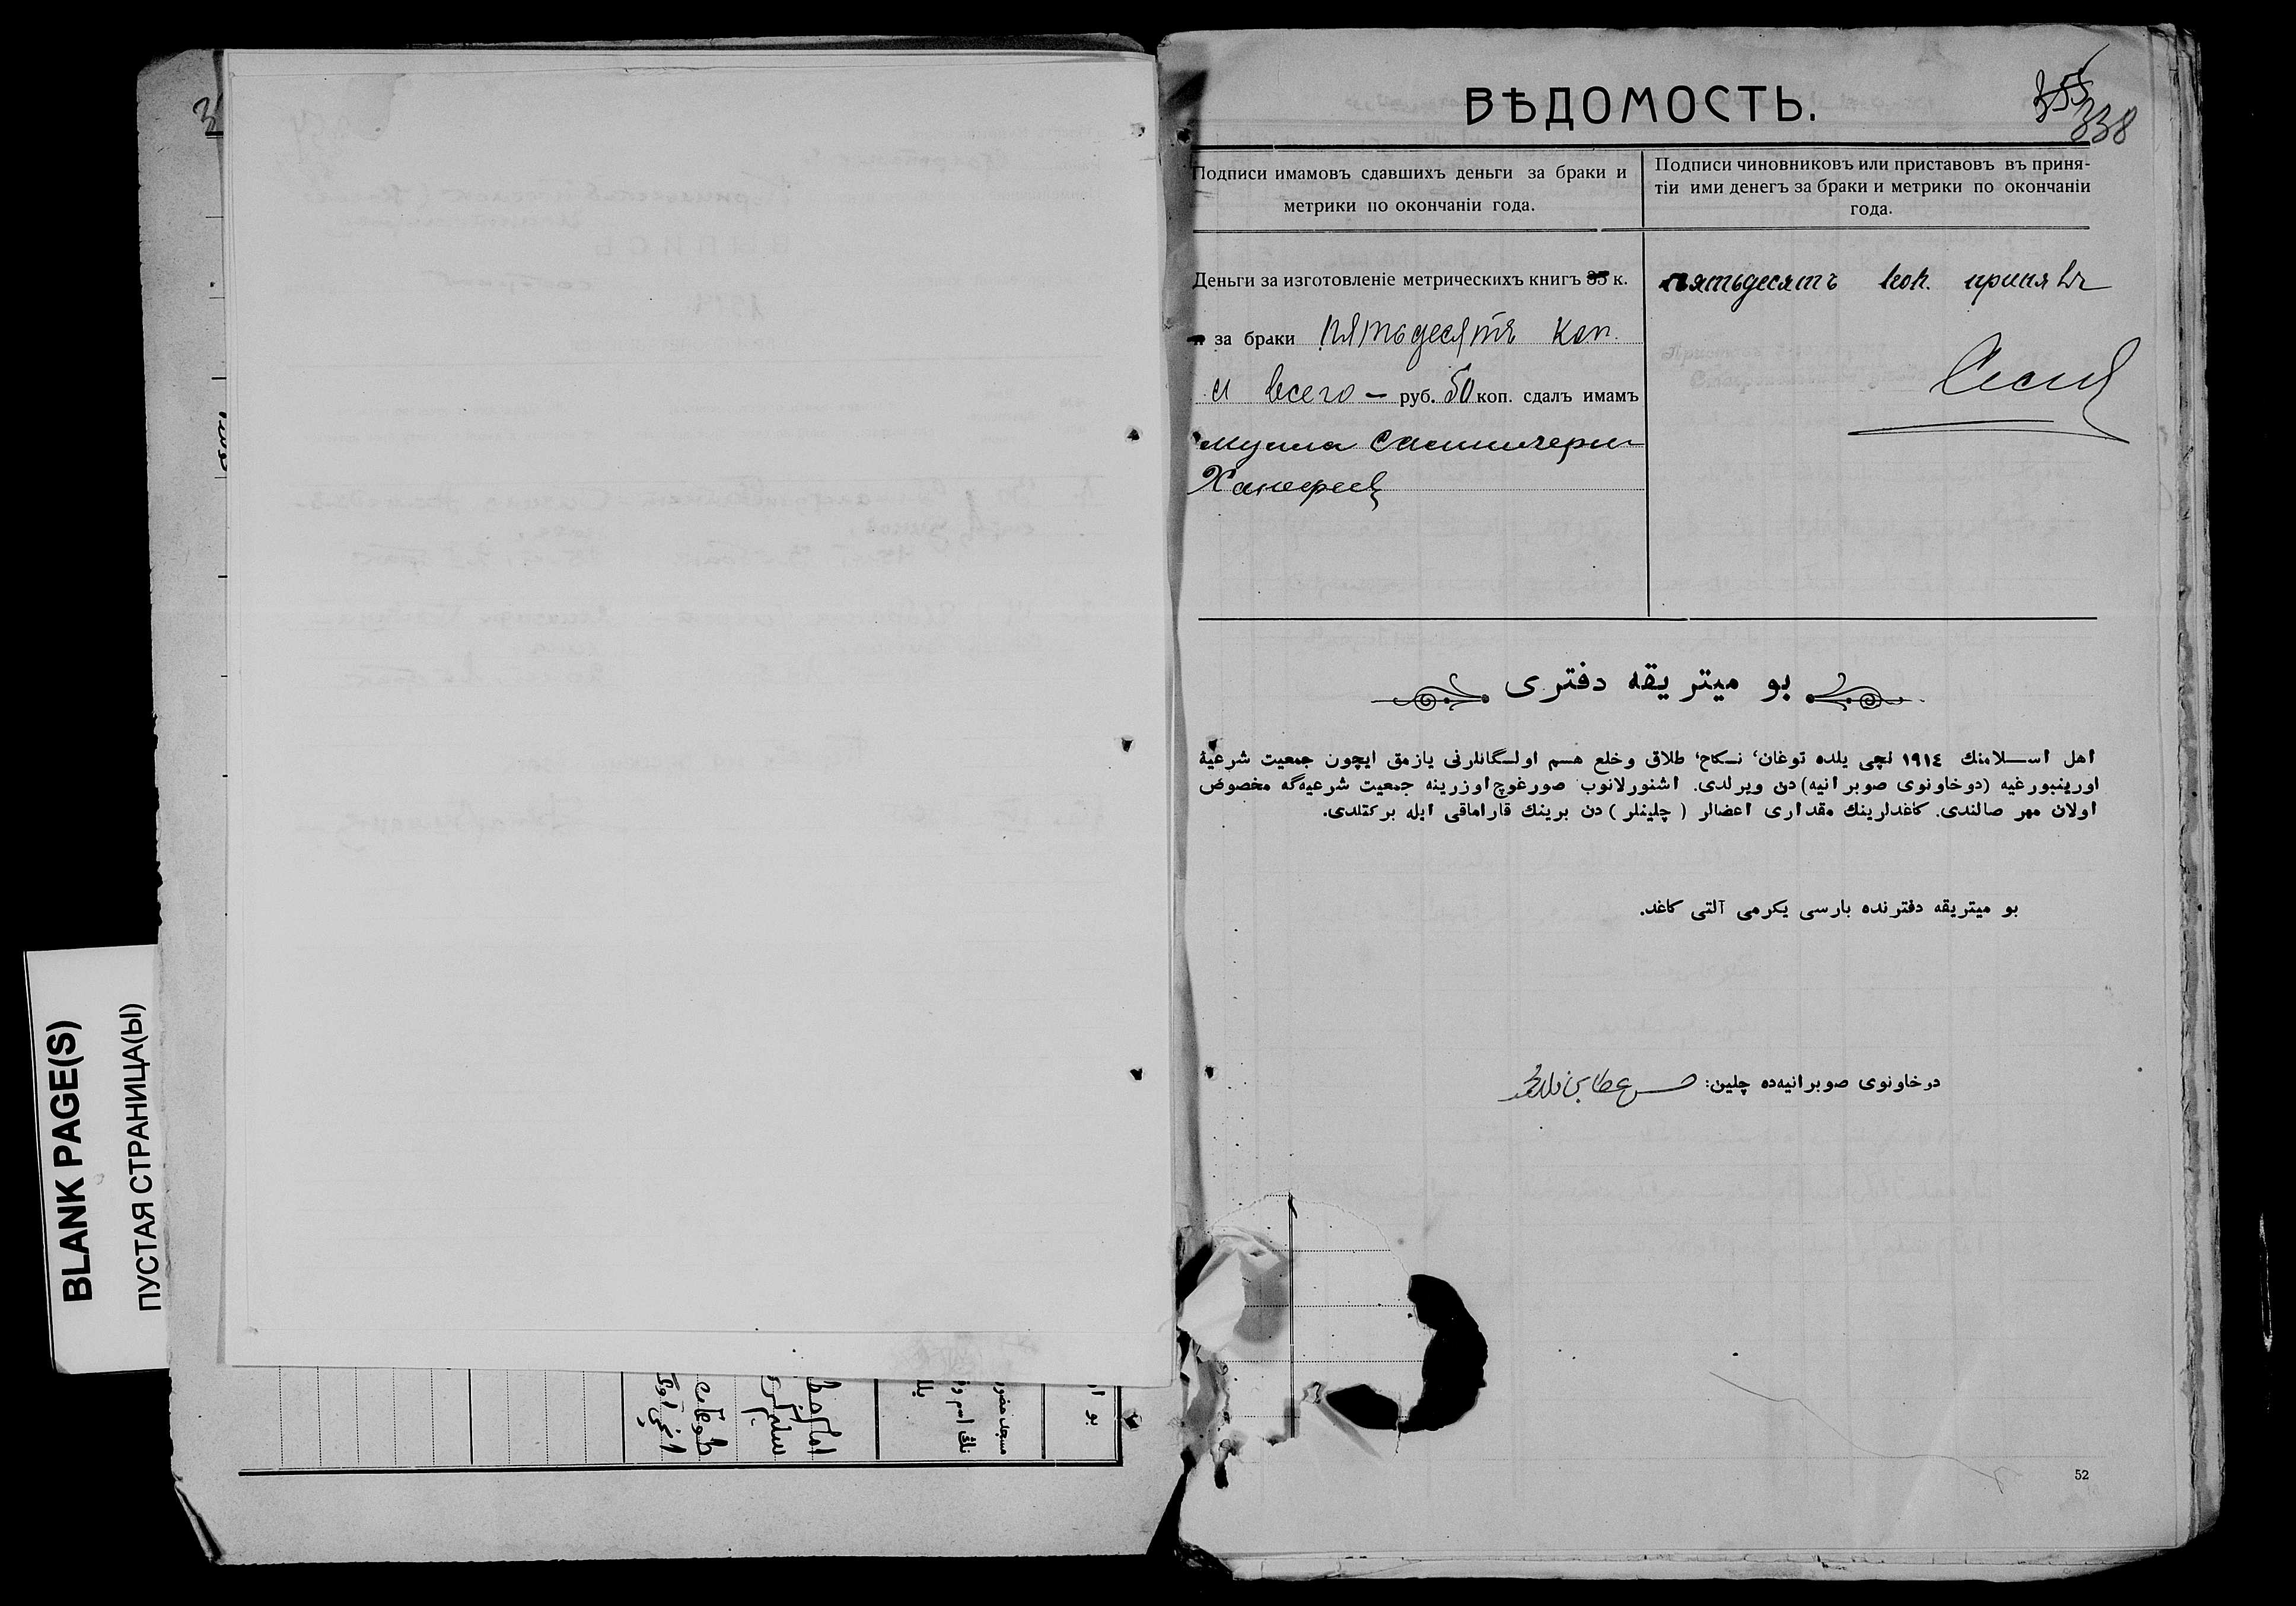 BLANK PAGE(S)
ПУСТАЯ СТРАНИЦА(Ы)
ВѢДОМОСТЬ.
355
338
Подписи имамовъ сдавшихъ деньги за браки и
метрики по окончаніи года.
Подписи чиновниковъ или приставовъ въ приня-
тіи ими денегъ за браки и метрики по окончаніи
года.
Деньги за изготовленіе метрическихъ книгъ 35 к.
и за браки пятьдесятъ коп.
и всего — руб. 50 коп. сдалъ имамъ
мулла
Ханефіевъ
пятьдесятъ коп. принялъ
بو ميتريقه دفترى
اهل اسلامنك ١٩١٤ نچى يلده توغان، نكاح، طلاق وخلع هم اولگانلرنى يازمق ايچون جمعيت شرعيۀ
اورينبورغيه (دوخاونوى صوبرانيه) دن ويرلدى. اشنورلانوب صورغوچ اوزرينه جمعيت شرعيه‌گه مخصوص
اولان مهر صالندى. كاغدلرينك مقدارى اعضالر (چلينلر) دن برينك قاراماقى ايله بركتلدى.
بو ميتريقه دفترنده بارسى يكرمى آلتى كاغد.
دوخاونوى صوبرانيه‌ده چلين:
52